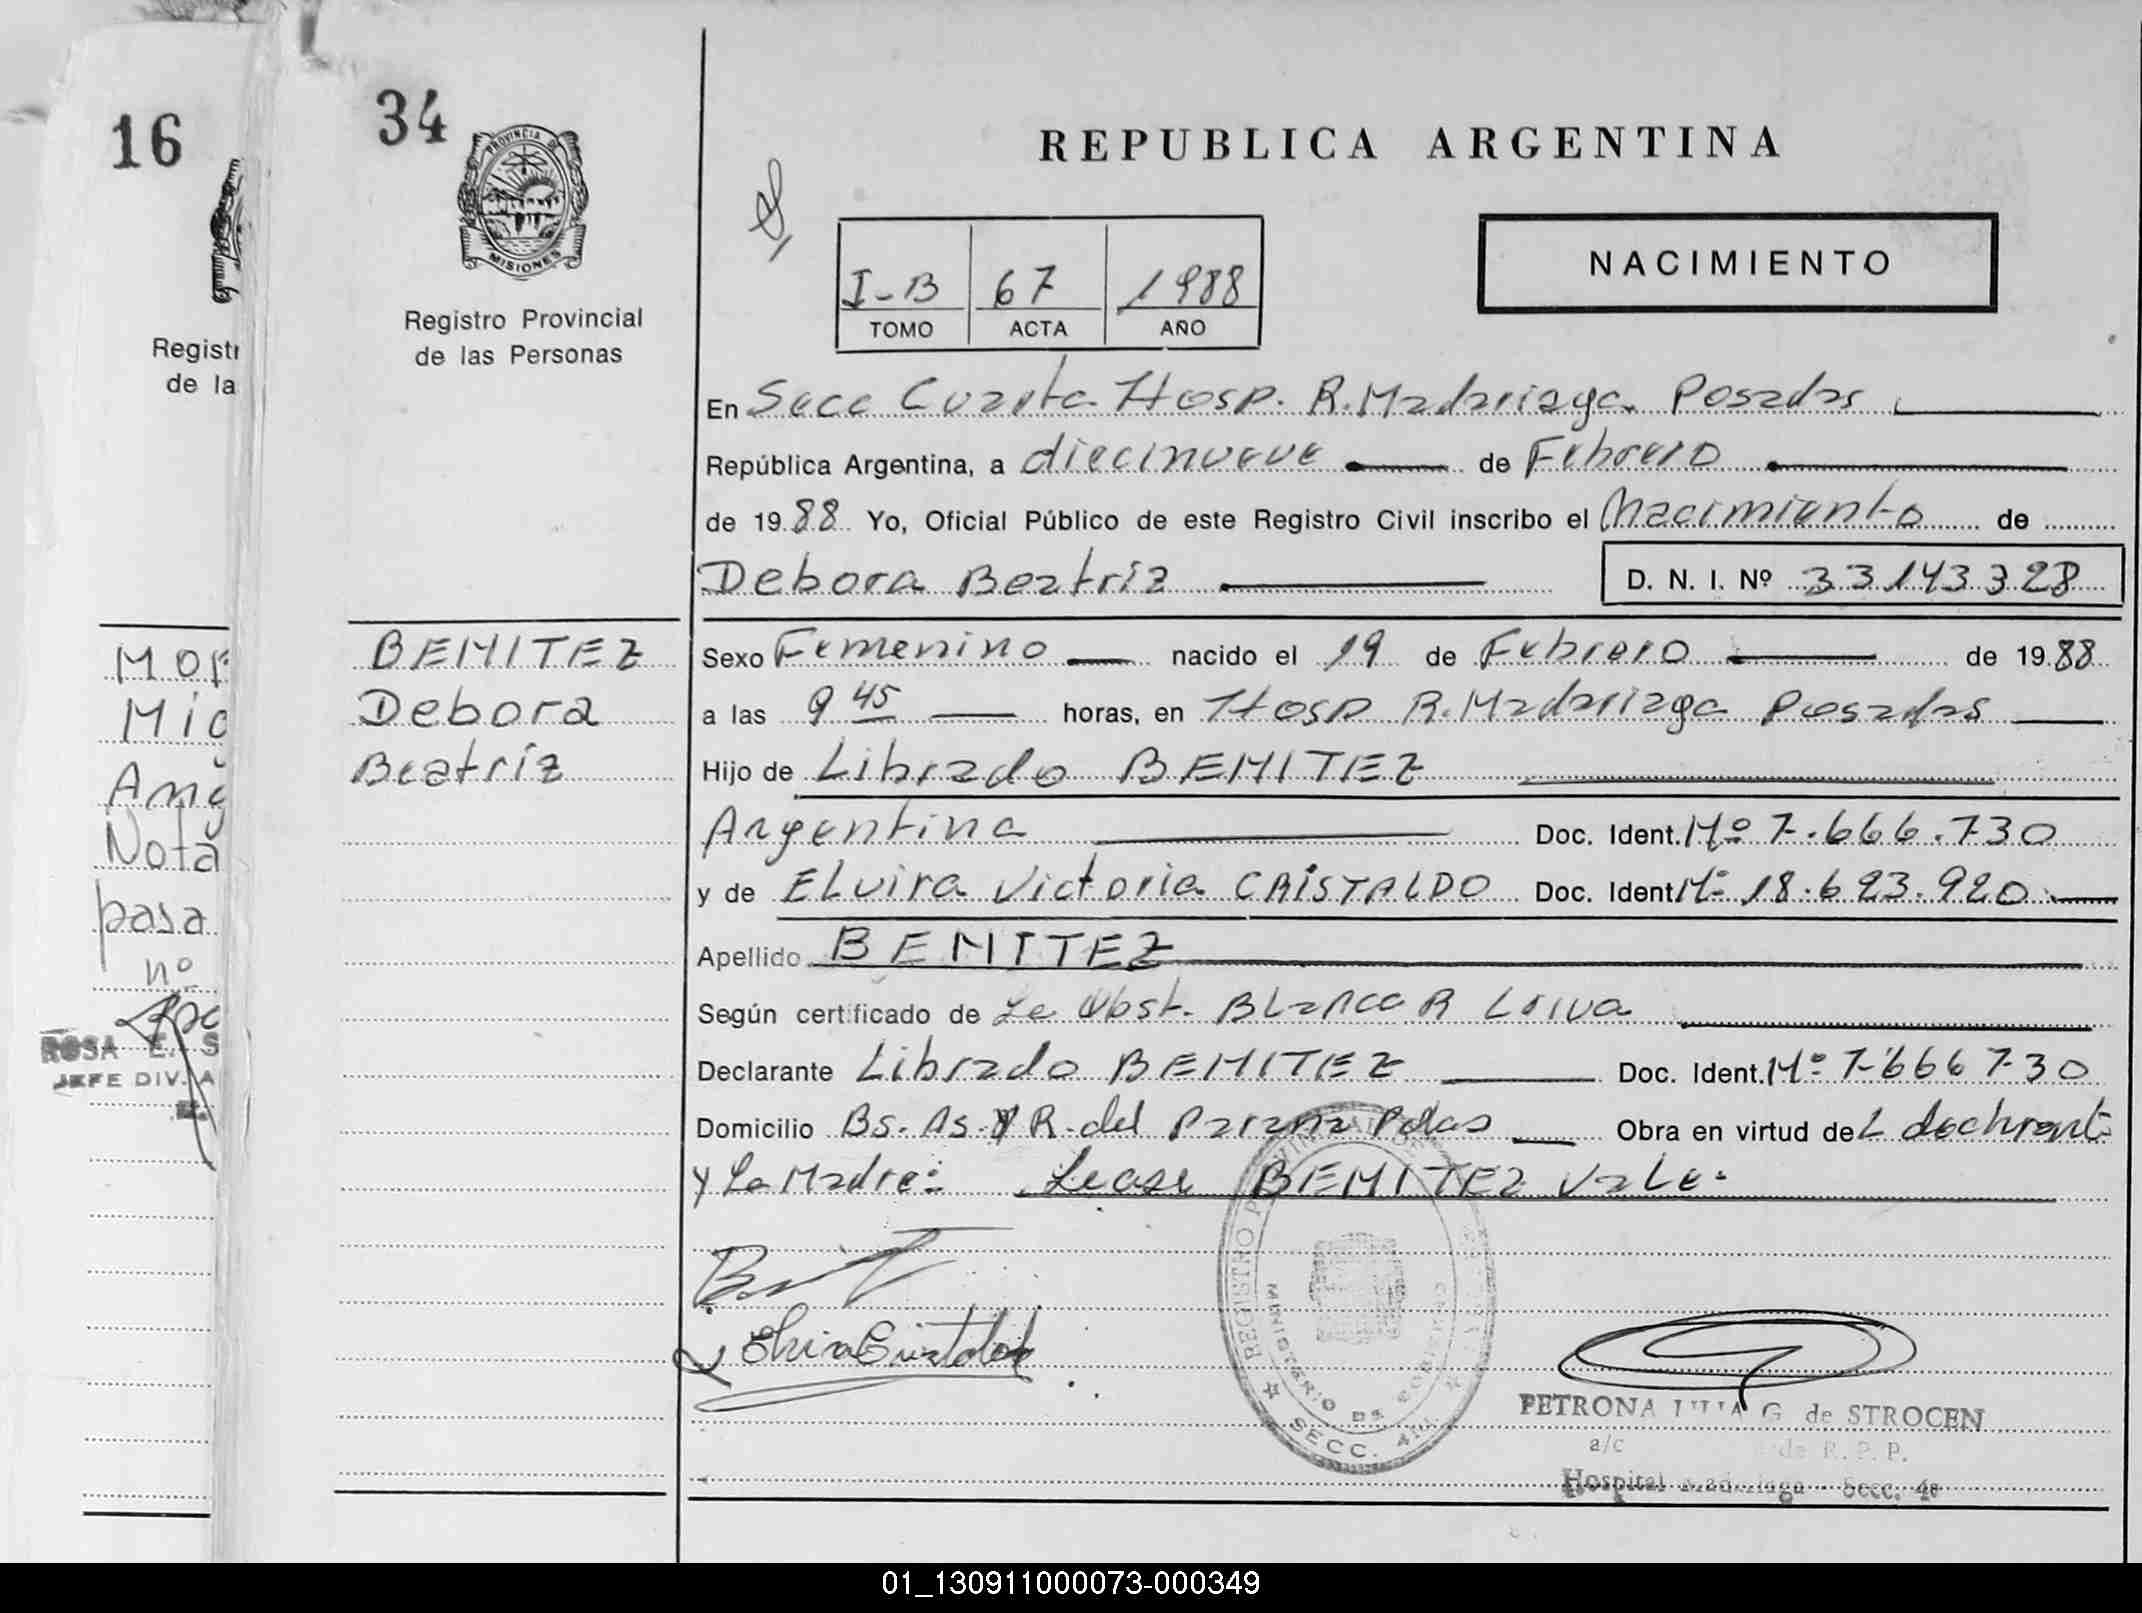 16
Registr
de la
MOR
Mig
Ang
Nota
pasa
nº
ROSA E. S
JEFE DIV. A
34
PROVINCIA DE
MISIONES
Registro Provincial
de las Personas
BENITEZ
Debora
Beatriz
REPUBLICA ARGENTINA
I-B 67 1988
TOMO ACTA AÑO
NACIMIENTO
En Secc Cuarta Hosp. R. Madariaga Posadas
República Argentina, a diecinueve de Febrero
de 1988 Yo, Oficial Público de este Registro Civil inscribo el Nacimiento de
Debora Beatriz D. N. I. Nº 33143328
Sexo Femenino nacido el 19 de Febrero de 1988
a las 9 45 horas, en Hosp R. Madariaga Posadas
Hijo de Librado BENITEZ
Argentina Doc. Ident. Nº 7.666.730
y de Elvira Victoria CRISTALDO Doc. Ident. Nº 18.623.920
Apellido BENITEZ
Según certificado de La Obst. Blanca R Loiva
Declarante Librado BENITEZ Doc. Ident. Nº 7.666 730
Domicilio Bs. As. y R. del Parana Pdas Obra en virtud del declarante
y La Madre: Lease BENITEZ Vale.
Elvira Cristaldo
REGISTRO
MINISTERIO DE GOBIERNO
SECC. 4ta
PETRONA JULIA G. de STROCEN
a/c de R. P. P.
Hospital Madariaga - Secc. 4a
01_130911000073-000349